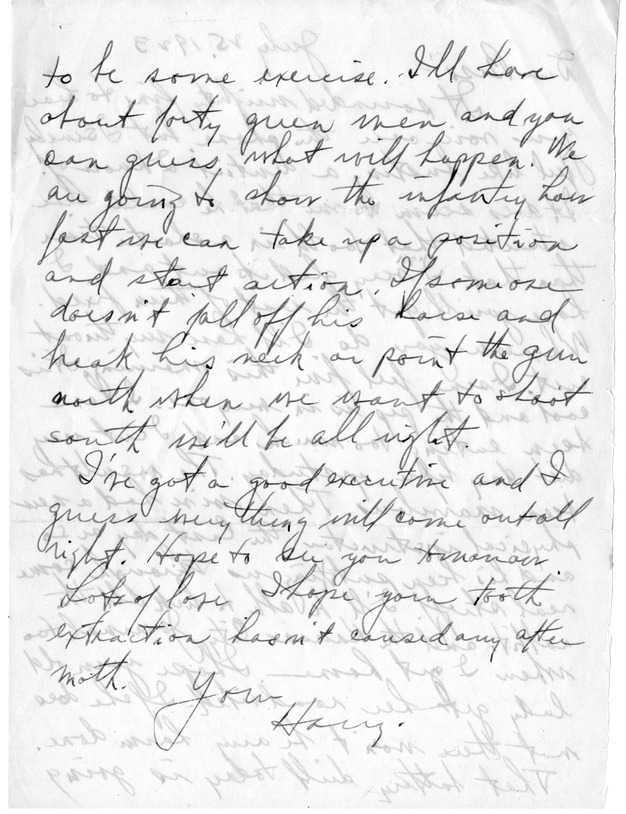 to be some exercise. I'll have
about forty green men and you
can guess what will happen. We
are going to show the infantry how
fast we can take up a position
and start action. If someone
doesn't fall off his horse and
break his neck or point the gun
north when we want to shoot
south we'll be all right.
I've got a good executive and I
guess everything will come out all
right. Hope to see you tomorrow
Lots of love. I hope your tooth
extraction hasn't caused any after
math.
Your
Harry.